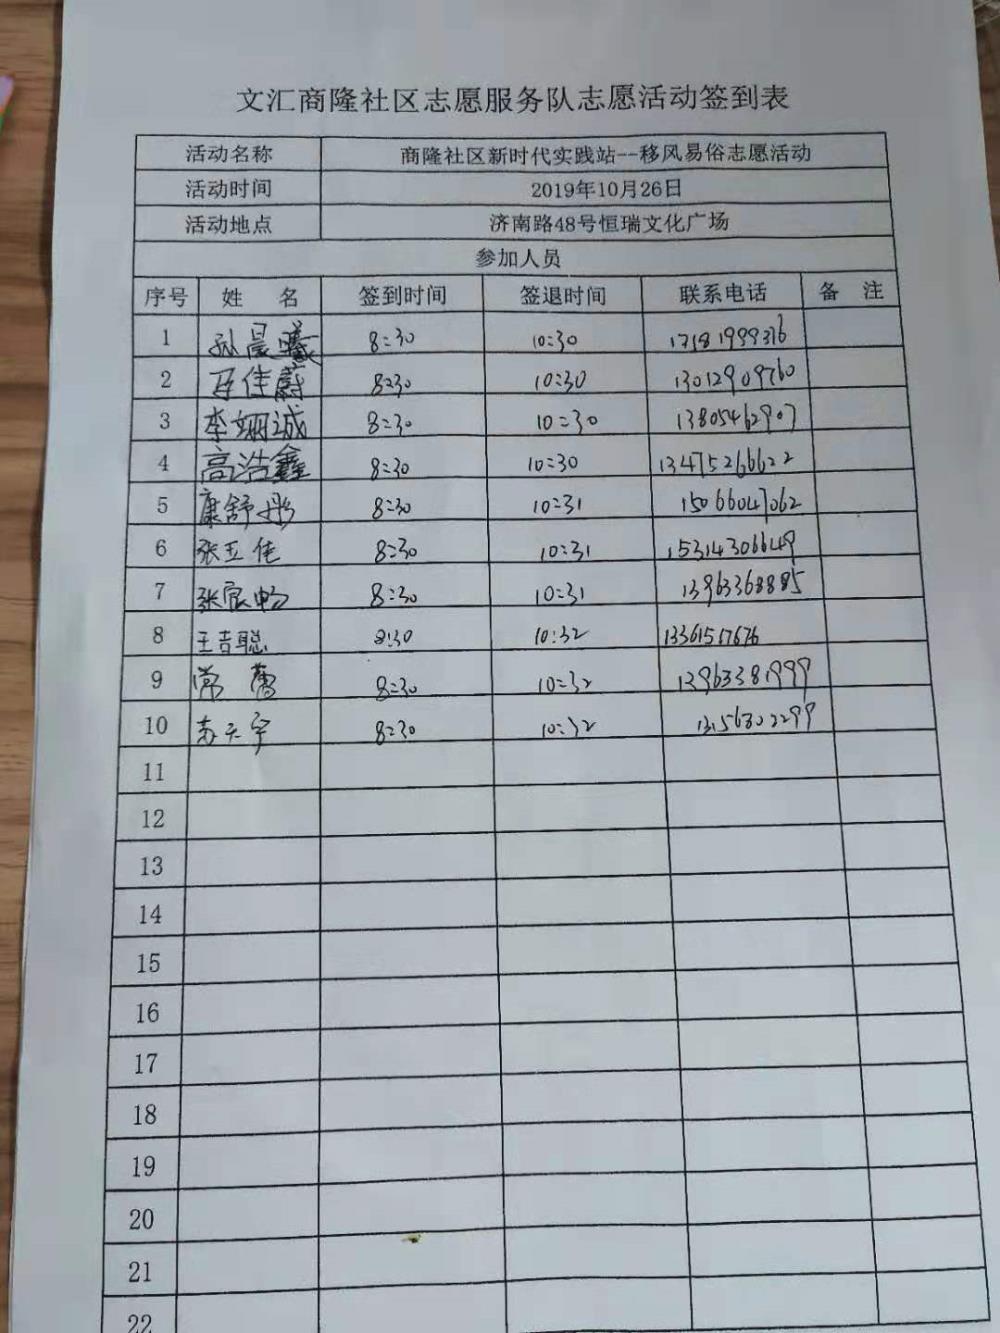 文汇商隆社区志愿服务队志愿活动签到表
活动名称 商隆社区新时代实践站--移风易俗志愿活动
活动时间 2019年10月26日
活动地点 济南路48号恒瑞文化广场
参加人员
序号 姓 名 签到时间 签退时间 联系电话 备 注
1 孙晨曦 8:30 10:30 17181999316
2 马佳蔚 8:30 10:30 13012909760
3 李姗诚 8:30 10:30 13805462907
4 高浩鑫 8:30 10:30 13475266622
5 康舒彤 8:30 10:31 15066047062
6 张玉佳 8:30 10:31 15314306649
7 张宸畅 8:30 10:31 13963368885
8 王吉聪 8:30 10:32 13361517676
9 常 8:30 10:32 13963381999
10 苏天宇 8:30 10:32 13156302299
11
12
13
14
15
16
17
18
19
20
21
22